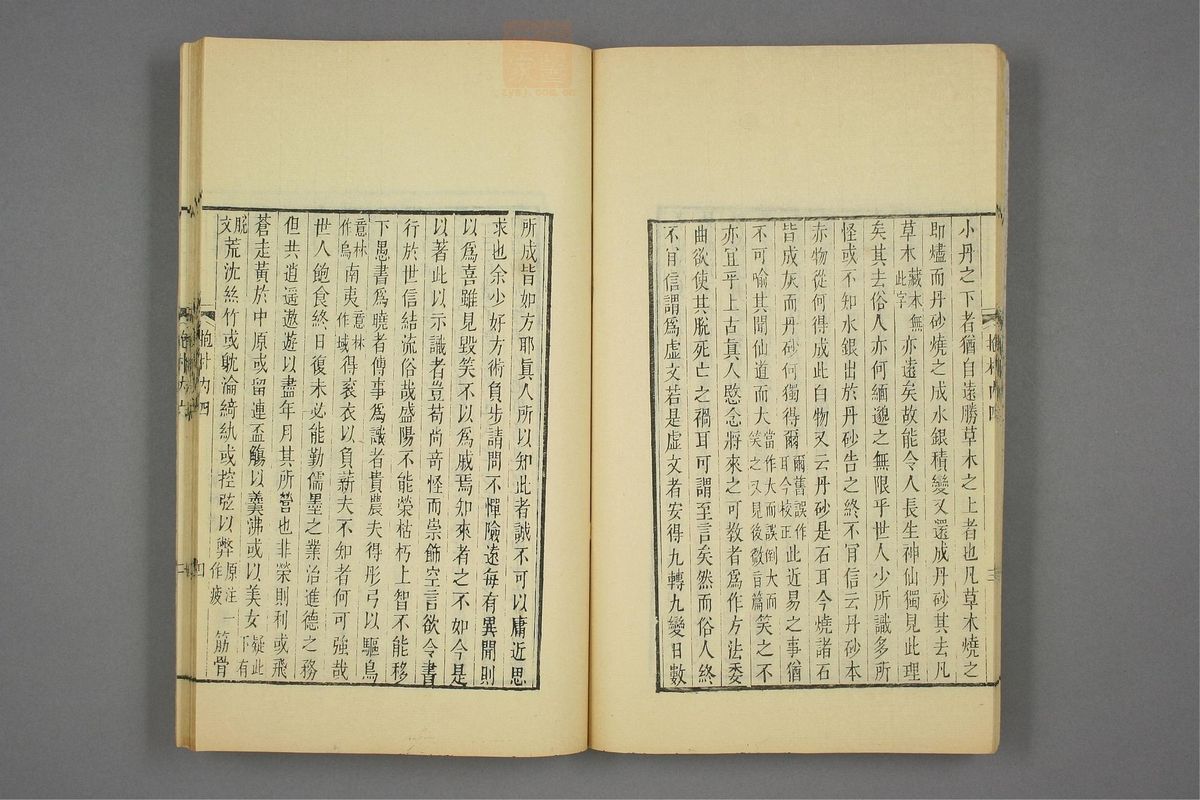 小丹之下者猶自遠勝草木之上者也凡草木燒之
即燼而丹砂燒之成水銀積變又還成丹砂其去凡
草木藏本無此字亦遠矣故能令人長生神仙獨見此理
矣其去俗人亦何緬邈之無限乎世人少所識多所
怪或不知水銀出於丹砂告之終不肎信云丹砂本
赤物從何得成此白物又云丹砂是石耳今燒諸石
皆成灰而丹砂何獨得爾爾舊誤作耳今校正此近易之事猶
不可喻其聞仙道而大當作大而誤倒大而笑之又見後微言篇笑之不
亦宜乎上古眞人愍念將來之可敎者爲作方法委
曲欲使其脫死亡之禍耳可謂至言矣然而俗人終
不肎信謂爲虛文若是虛文者安得九轉九變日數
所成皆如方耶眞人所以知此者誠不可以庸近思
求也余少好方術負步請問不憚險遠每有異聞則
以爲喜雖見毀笑不以爲戚焉知來者之不如今是
以著此以示識者豈苟尚奇怪而崇飾空言欲令書
行於世信結流俗哉盛陽不能榮枯朽上智不能移
下愚書爲曉者傳事爲識者貴農夫得彤弓以驅鳥
意林作烏南夷意林作域得袞衣以負薪夫不知者何可強哉
世人飽食終日復未必能勤儒墨之業治進德之務
但共逍遥遨遊以盡年月其所營也非榮則利或飛
蒼走黃於中原或留連盃觴以羹沸或以美女疑此下有
脫文荒沈絲竹或耽淪綺紈或控弦以弊原注一作疲筋骨
抱朴內四
四